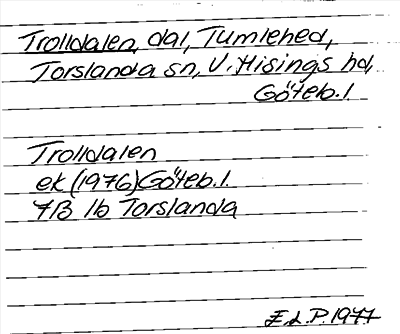 Trolldalen, dal, Tumlehed,
Torslanda sn, V. Hisings hd,
Göteb. l.
Trolldalen
ek (1976) Göteb. l.
7B 1b Torslanda
E.L.P. 1977